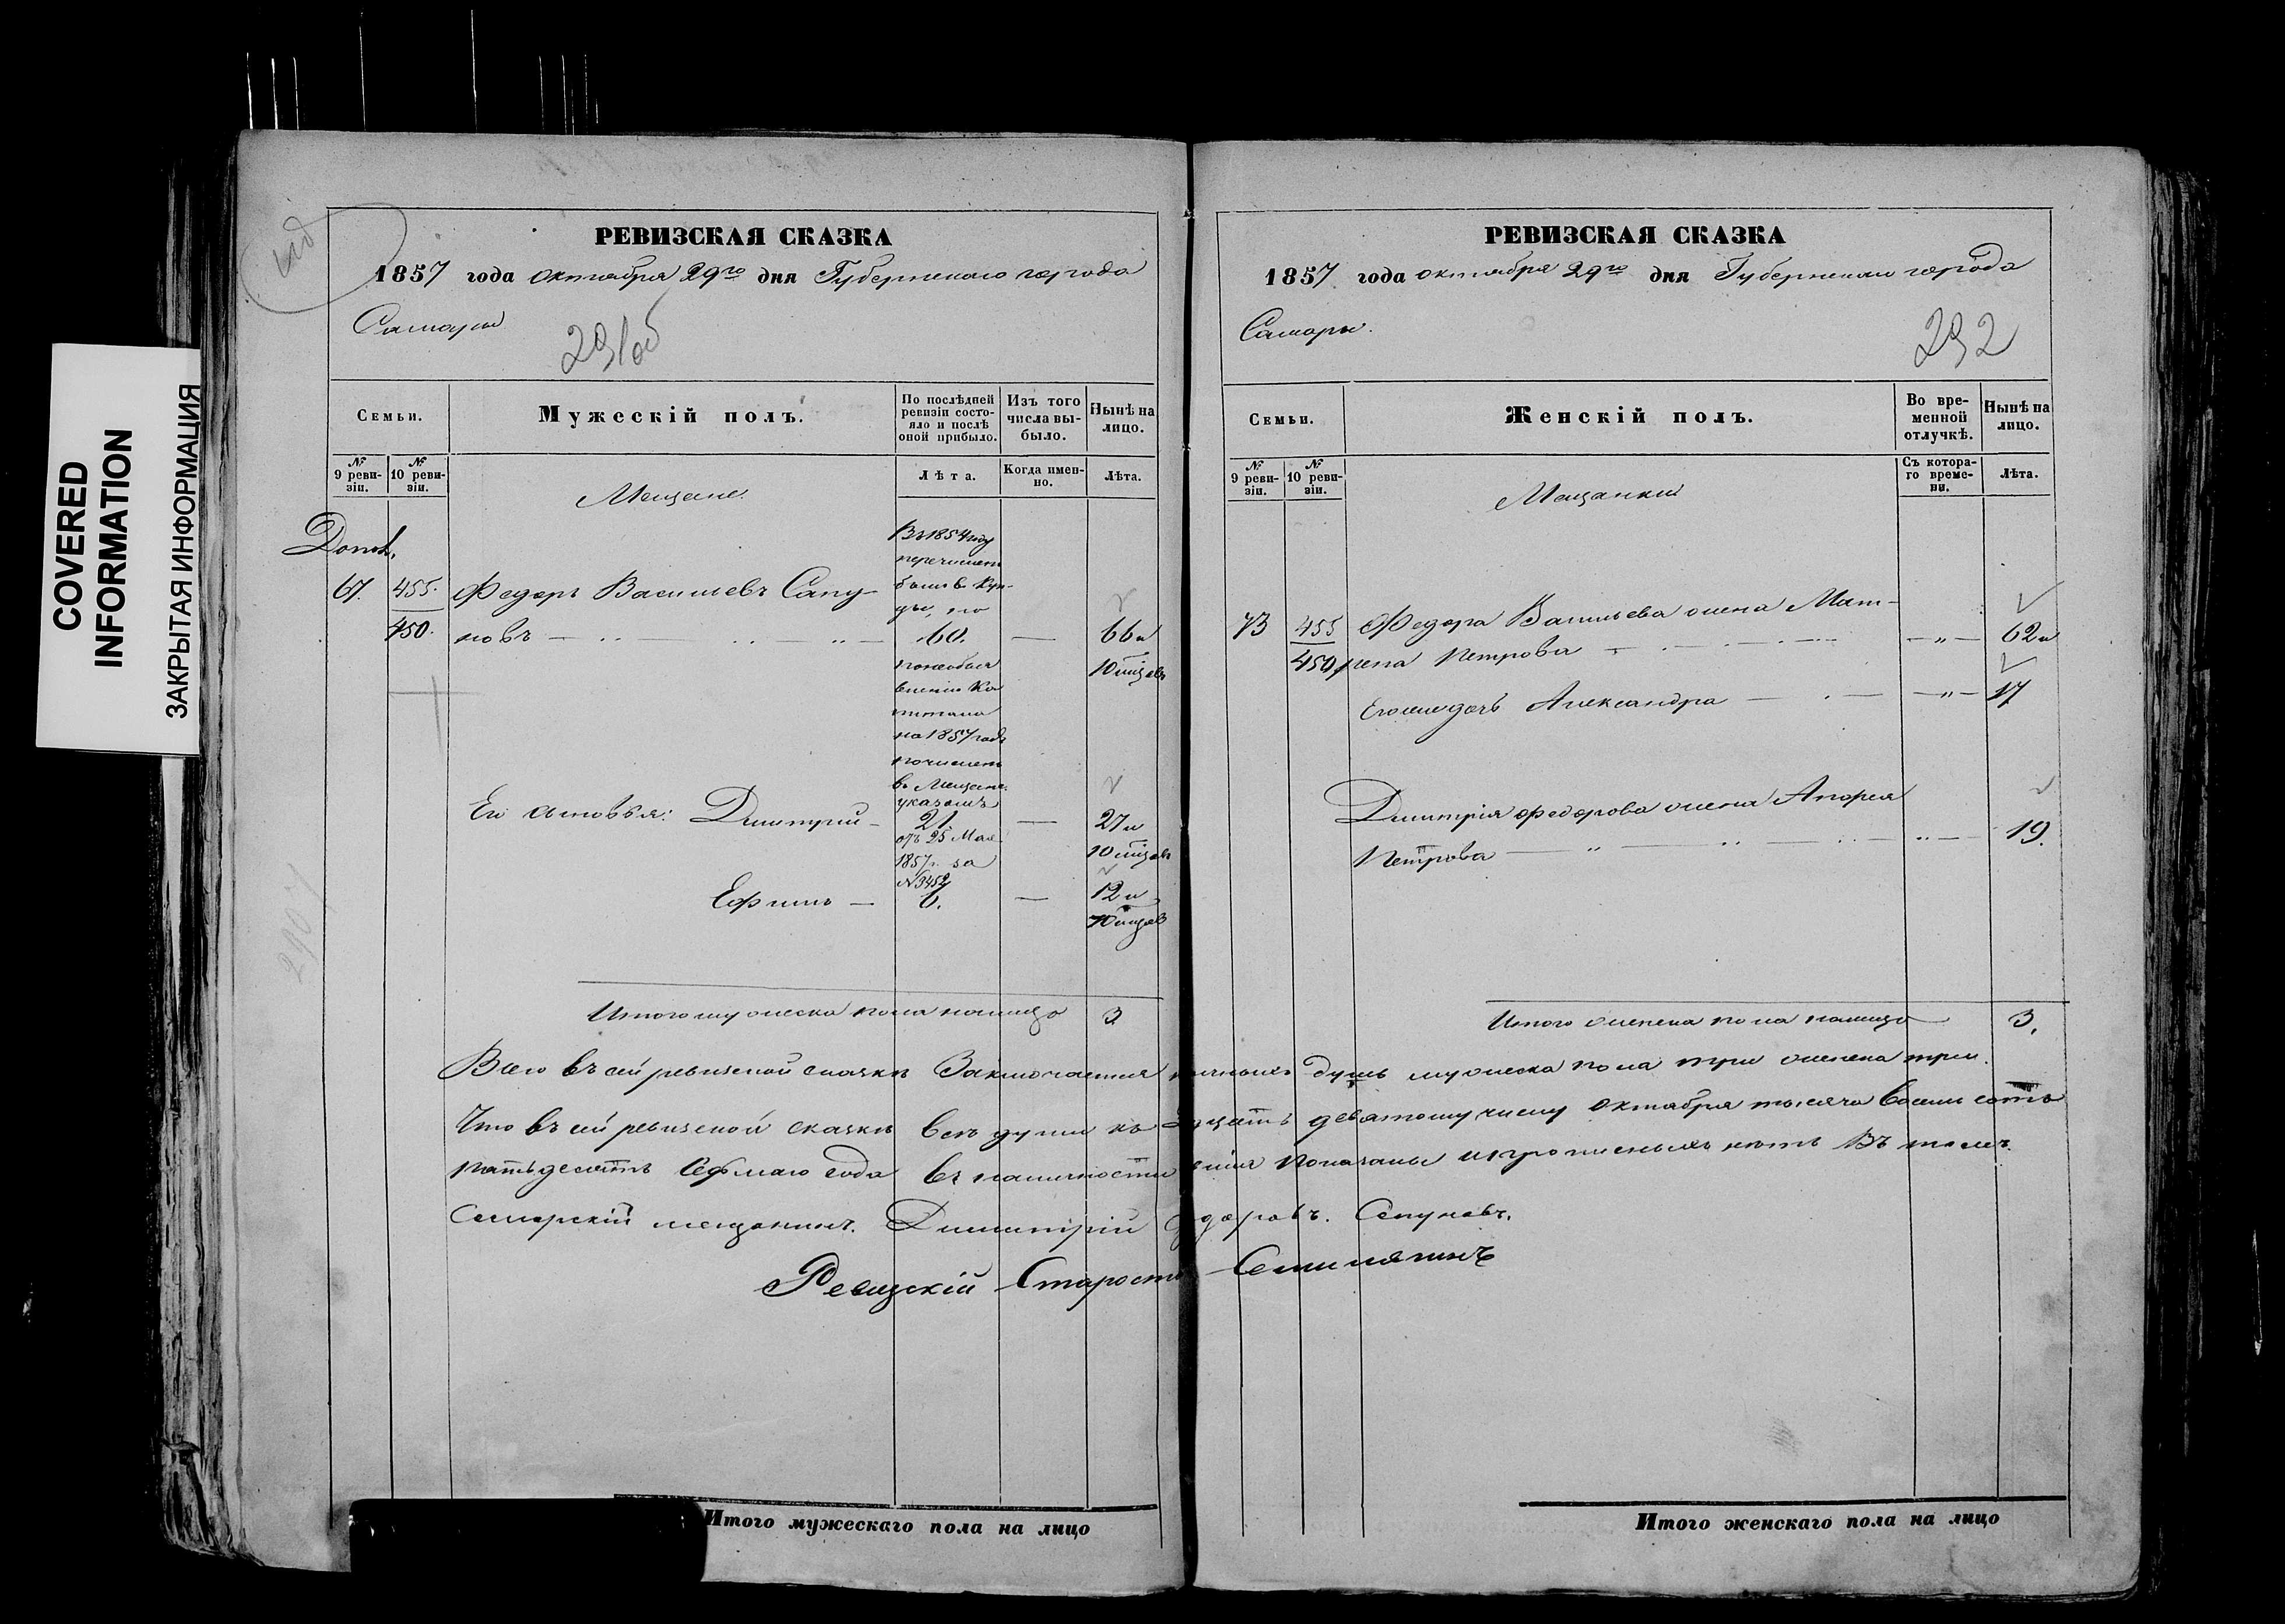 COVERED
INFORMATION
ЗАКРЫТАЯ ИНФОРМАЦИЯ
РЕВИЗСКАЯ СКАЗКА
1857 года октября 29го дня Губернскаго города
Самары
291об
Семьи.
Мужескій полъ.
По послѣдней ревизіи состояло и послѣ оной прибыло.
Изъ того числа выбыло.
Нынѣ на лицо.
№ 9 ревизіи.
№ 10 ревизіи.
Мещане.
Лѣта.
Когда именно.
Лѣта.
Въ 1854 году
перечислен
былъ в Куп-
цы, по
67. 455. Федоръ Васильевъ Сапу-
450. новъ 60. — 66 и
10 мцѣвъ
на 1857 годъ
причислен
въ Мещане
указомъ
Его сыновья: Дмитрий — 21. — 27 и
отъ 25 Мая
10 мцѣвъ
1857 г. за
№ 3452
Ефимъ — 6. — 12 и
10 мцѣвъ
Итого мужеска пола налицо 3
РЕВИЗСКАЯ СКАЗКА
1857 года октября 29го дня Губернскаго города
Самары.
292
Семьи.
Женскій полъ.
Во временной отлучкѣ.
Нынѣ на лицо.
№ 9 ревизіи.
№ 10 ревизіи.
Мещанки
Съ котораго времени.
Лѣта.
73 455 Федора Васильева жена Мат-
450 рена Петрова — „ — 62 и
Его же дочь Александра — „ — 17
Дмитрія Федорова жена
Петрова 19.
Итого женска пола налицо 3.
Всего въ сей ревизской сказкѣ заключается наличныхъ душъ мужеска пола три женска три.
Что въ сей ревизской сказкѣ всѣ души къ двадцать девятому числу октября тысяча восемь сотъ
пятьдесятъ седьмаго года въ наличности показаны и прописныхъ нѣтъ въ томъ.
Самарскій мещанинъ. Дмитрій Федоровъ. Сапуновъ.
Ревизскій Староста
Итого мужескаго пола на лицо
Итого женскаго пола на лицо